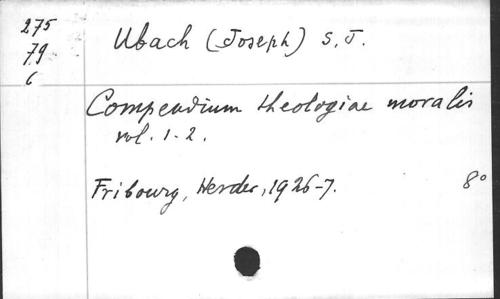 275
79
6
Ubach (Joseph) S. J.
Compendium theologiae moralis
vol. 1-2.
Fribourg, Herder, 1926-7.
8°